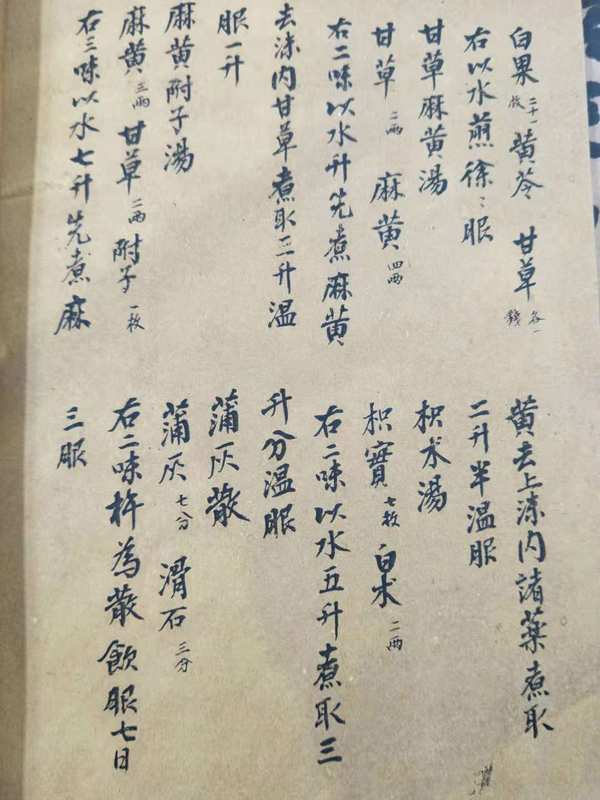 白果二十一枚 黄芩 甘草各一錢
右以水煎徐〻服
甘草麻黄湯
甘草二兩 麻黄四兩
右二味以水升先煮麻黄
去沫内甘草煮取三升温
服一升
麻黄附子湯
麻黄三兩 甘草二兩 附子一枚
右三味以水七升先煮麻
黄去上沫内諸藥煮取
二升半温服
枳术湯
枳實七枚 白术二兩
右二味以水五升煮取三
升分温服
蒲灰散
蒲灰七分 滑石三分
右二味杵為散飲服七日
三服